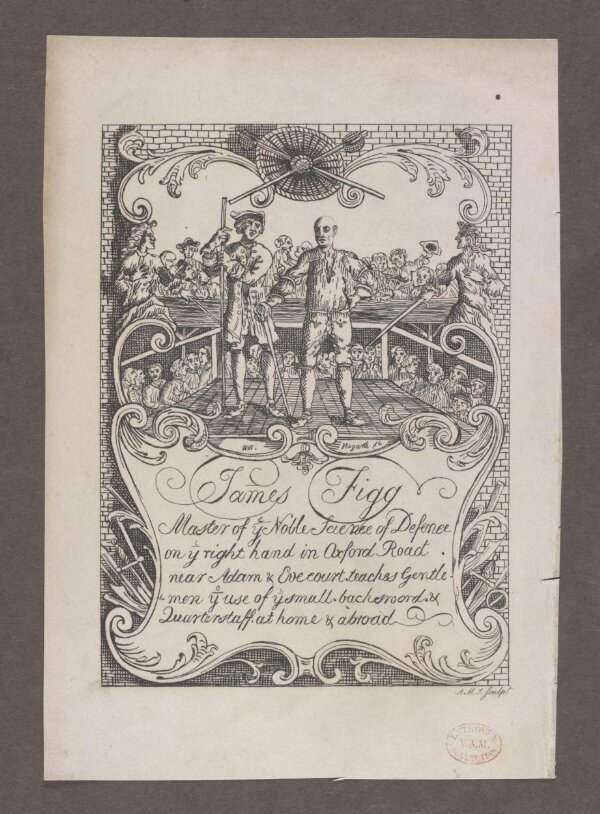 Will. Hogarth ft
James Figg
Master of yͤ Noble Science of Defence
on yͤ right hand in Oxford Road
near Adam & Eve court teaches Gentle-
-men yͤ use of yͤ small backsword &
Quarterstaff at home & abroad
A M I Sculpt
V.A.M.